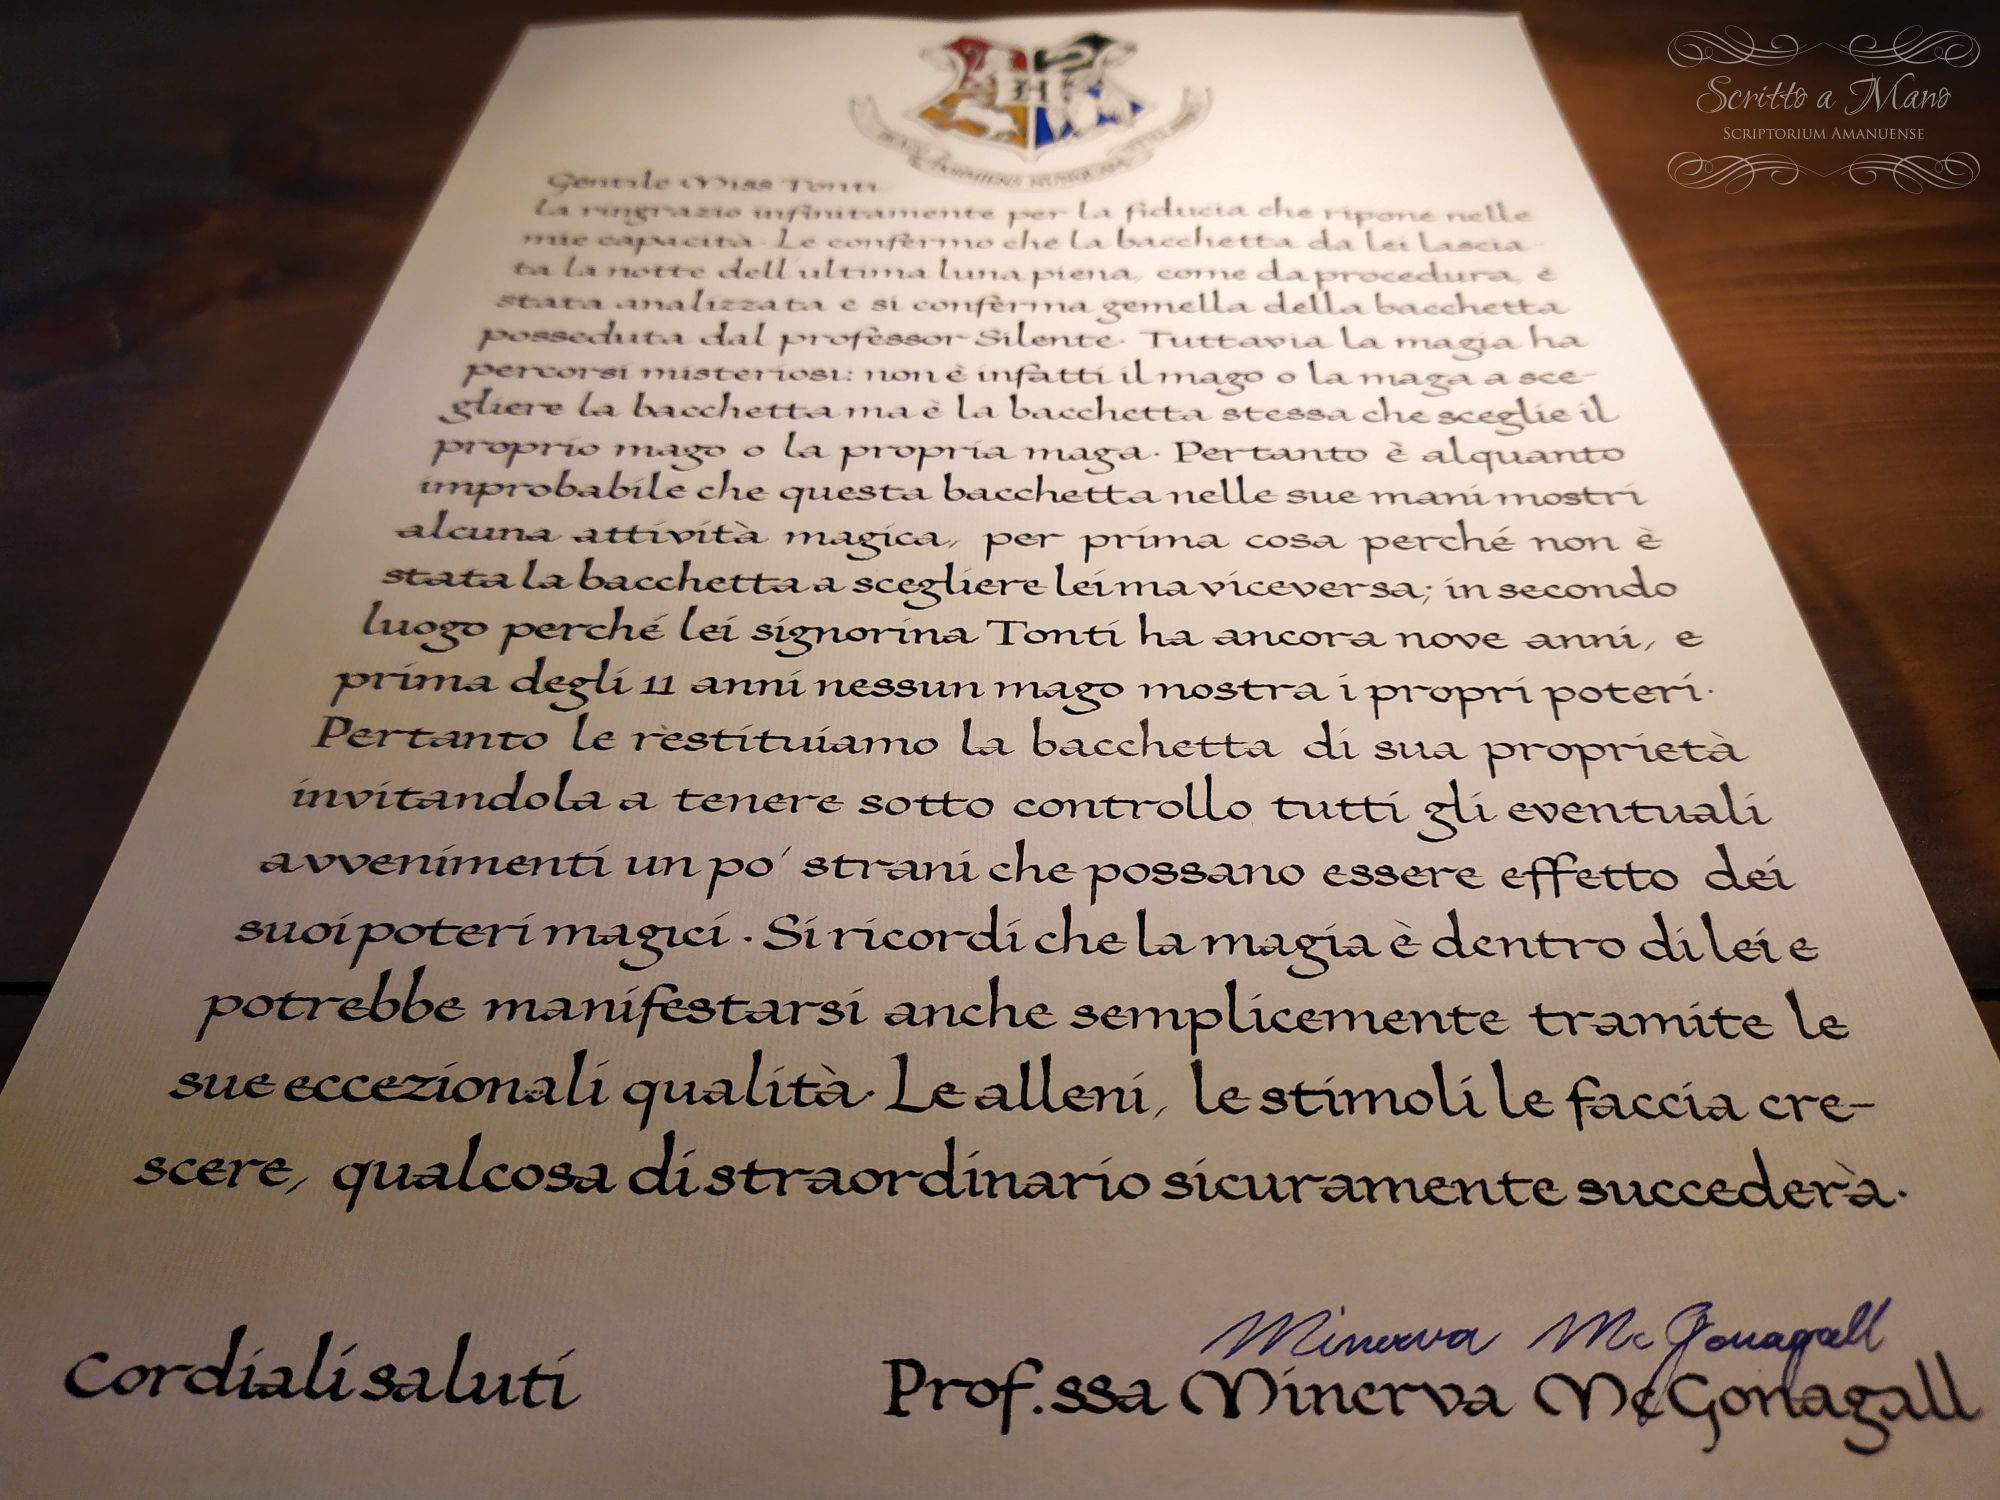 Scritto a Mano
SCRIPTORIUM AMANUENSE
H
Gentile Miss Tonti
La ringrazio infinitamente per la fiducia che ripone nelle
mie capacità. Le confermo che la bacchetta da lei lascia-
ta la notte dell'ultima luna piena, come da procedura, è
stata analizzata e si conferma gemella della bacchetta
posseduta dal professor Silente. Tuttavia la magia ha
percorsi misteriosi: non è infatti il mago o la maga a sce-
gliere la bacchetta ma è la bacchetta stessa che sceglie il
proprio mago o la propria maga. Pertanto è alquanto
improbabile che questa bacchetta nelle sue mani mostri
alcuna attività magica, per prima cosa perché non è
stata la bacchetta a scegliere lei ma viceversa; in secondo
luogo perché lei signorina Tonti ha ancora nove anni, e
prima degli 11 anni nessun mago mostra i propri poteri.
Pertanto le restituiamo la bacchetta di sua proprietà
invitandola a tenere sotto controllo tutti gli eventuali
avvenimenti un po' strani che possano essere effetto dei
suoi poteri magici. Si ricordi che la magia è dentro di lei e
potrebbe manifestarsi anche semplicemente tramite le
sue eccezionali qualità. Le alleni, le stimoli le faccia cre-
scere, qualcosa di straordinario sicuramente succederà.
Minerva McGonagall
Cordiali saluti Prof.ssa Minerva McGonagall